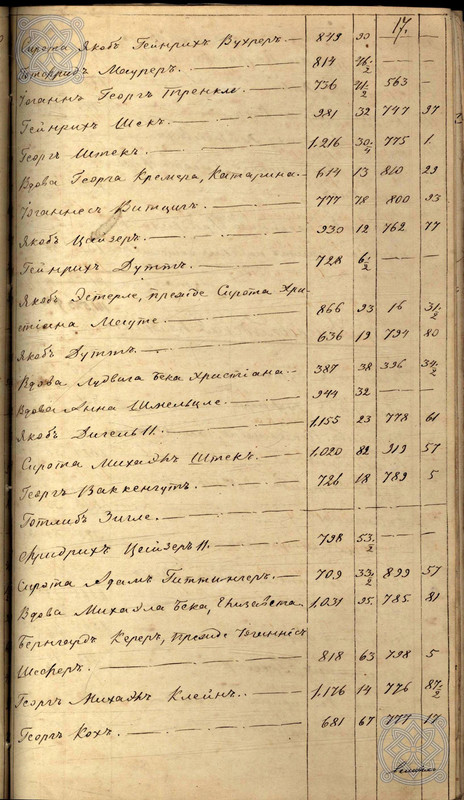 17.
Сирота Якобъ Гейнрихъ Вухреръ. — 849 90 — —
Готфридъ Мауреръ. — 814 76.½ — —
Іоганнъ Георгъ Тренкле. — 736 71.½ 563 —
Гейнрихъ Шекъ. — 981 32 747 97
Георгъ Штекъ. — 1,216 30.¼ 775 1.
Вдова Георга Кремера, Катарина. — 614 13 810 29
Іоганнесъ Витцигъ. — 777 78 800 93
Якобъ Цейзеръ. — 930 12 762 77
Гейнрихъ Дуттъ. — 728 6.½ — —
Якобъ Эстерле, прежде Сирота Хри-
стіана Мауте. — 866 93 16 31.½
Якобъ Дуттъ. — 636 19 794 80
Вдова Лудвига Бека Христіана. — 387 38 396 34.½
Вдова Анна Шмельцле. — 944 32 — —
Якобъ Дигель II. — 1,155 23 778 61
Сирота Михаэль Штекъ. — 1,020 82 919 57
Георгъ Ваккенгутъ. — 726 18 789 5
Готлибъ Зигле. —
Фридрихъ Цейзеръ II. — 798 53.½ — —
Сирота Адамъ Гиттингеръ. — 709 33.½ 899 57
Вдова Михаэла Бека, Елизавета. 1,031 95. 785 81
Бернгардъ Кереръ, прежде Іоганнесъ
Шеферъ. — 818 63 798 5
Георгъ Михаэль Клейнъ. — 1,176 14 776 87.½
Георгъ Кохъ. — 681 67 777 17